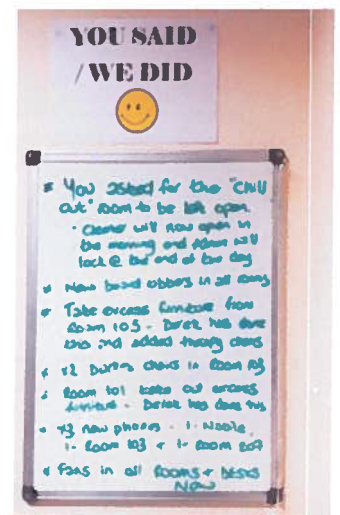 YOU SAID
/ WE DID
* You asked for the "chill
out" room to be left open.
- Cleaner will now open in
the morning and Adam will
lock @ the end of the day
* New board rubbers in all rooms
* Take excess furniture from
Room 105 - Derek has done
this and added therapy chairs
* x2 chairs in Room 103
* Room 101 take out excess
furniture - Derek has done this
* x3 new phones - 1 -
1 - Room 103 + 1 - Room
* Fans in all ROOMS + DESKS
NOW